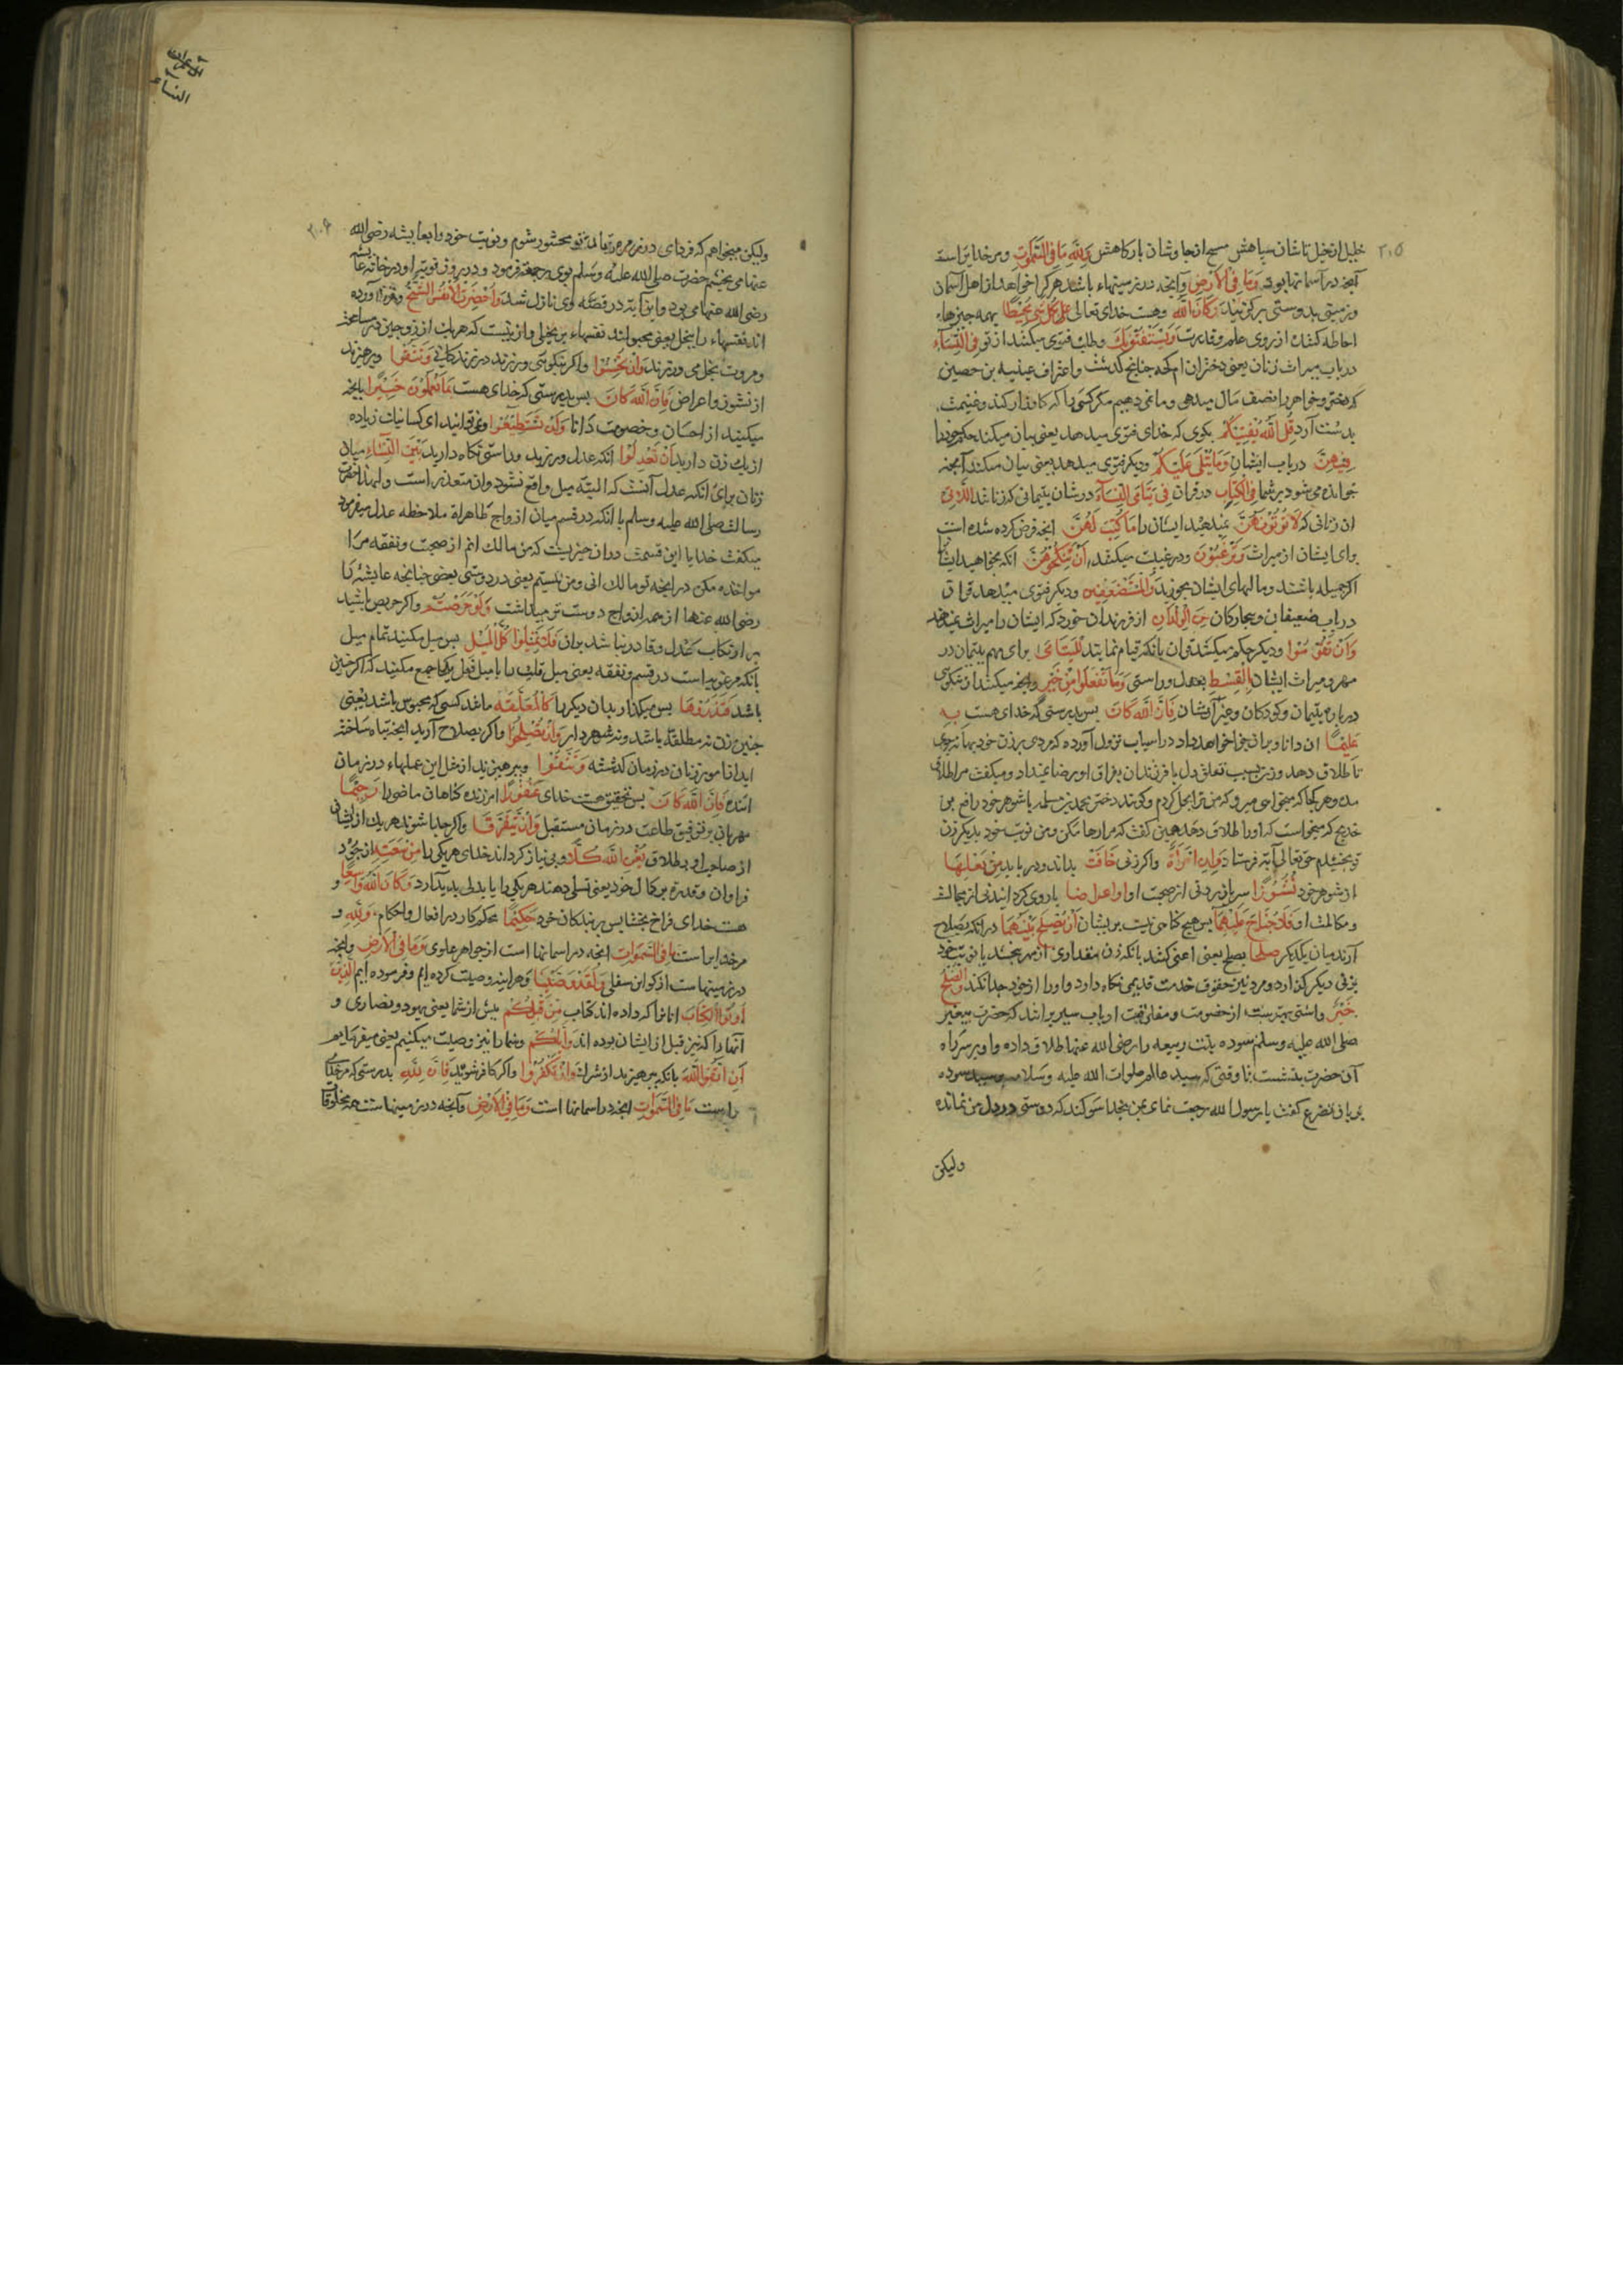 ۲۰۵
خلیل از خیل تاشان سپاهش مسیح از چاوشان بارکاهش وَلِلّٰهِ مَا فِی السَّمٰوٰتِ ومر خدایراست
آنچه در آسمانها بود وَمَا فِی الْاَرْضِ وآنچه در زمینهاء باشند هرکرا خواهد از اهل آسمان
وزمین بدوستی برکزیند وَکَانَ اللّٰهُ وهست خدای تعالی بِکُلِّ شَیْءٍ مُحِیطًا بهمه چیزهاء
احاطه کننده از روی علم وقدرت وَیَسْتَفْتُونَكَ وطلب فتوی میکنند از تو فِی النِّسَآءِ
در باب میراث زنان یعنی دختران ام کحه چنانچ کذشت واعتراف عیینه بن حصین
که دختر وخواهر را نصف مال میدهی وما نمی دهیم مکر کسی را که کارزار کند وغنیمت
بدست آرد قُلِ اللّٰهُ یُفْتِیکُمْ بکوی که خدای فتوی میدهد یعنی بیان میکند حکم خود را
فِیهِنَّ در باب ایشان وَمَا یُتْلٰی عَلَیْکُمْ ودیکر فتوی میدهد یعنی بیان میکند آنچه
خوانده می شود بر شما فِی الْکِتَابِ در قران فِی یَتَامَی النِّسَآءِ در شان یتیمانی که زنانند اللَّاتِی
ان زنانی که لَا تُؤْتُونَهُنَّ نمیدهید ایشان را مَا کُتِبَ لَهُنَّ انچه فرض کرده شده است
برای ایشان از میراث وَتَرْغَبُونَ ودر غبت میکنند اَنْ تَنْکِحُوهُنَّ انکه بخواهید ایشانرا
اکر جمیله باشند ومالهای ایشان بخورید وَالْمُسْتَضْعَفِینَ ودیکر فتوی میدهد قران
در باب ضعیفان وبیچارکان مِنَ الْوِلْدَانِ از فرزندان خورد که ایشان را میراث نمیدهند
وَاَنْ تَقُومُوا ودیکر حکم میکند قران بانکه قیام نمایند لِلْیَتَامٰی برای مهم یتیمان در
مهر ومیراث ایشان بِالْقِسْطِ بعدل وراستی وَمَا تَفْعَلُوا مِنْ خَیْرٍ وانچه میکنند از نیکوی
در باره یتیمان وکودکان وغیر ایشان فَاِنَّ اللّٰهَ کَانَ پس بدرستی که خدای هست بِهِ
عَلِیمًا ان دانا وبران جزا خواهد داد در اسباب نزول آورده که مردی بر زن خود بهانه جوی
تا طلاق دهد وزن بسبب تعلق دل با فرزندان بفراق او رضا نمیداد ومیکفت مرا طلاق
مده وهر کجا که میخواهی میرو که من ترا بحل کردم وکویند دختر محمد بن مسلمه با شوهر خود رافع بن
خدیج که میخواست که اورا طلاق دهد همین کفت که مرا رها مکن ومن نوبت خود بدیکر زن
تو بخشیدم حق تعالی آیت فرستاد وَاِنِ امْرَاَةٌ واکر زنی خَافَتْ بداند ودر یابد مِنْ بَعْلِهَا
از شوهر خود نُشُوزًا سرباز بردنی از صحبت او اَوْ اِعْرَاضًا یا روی کردانیدنی از مجالست
ومکالمت او فَلَا جُنَاحَ عَلَیْهِمَا پس هیچ کناهی نیست بر ایشان اَنْ یُصْلِحَا بَیْنَهُمَا در انکه بصلاح
آرند میان یکدیکر صُلْحًا بصلح یعنی اشتی کنند بانکه زن مقداری از مهر بخشد یا نوبت خود
بزنی دیکر کذارد ومرد نیز حقوق خدمت قدیمی نکاه دارد واورا از خود جدا نکند وَالصُّلْحُ
خَیْرٌ واشتی بهتر است از خصومت ومفارقت ارباب سیر برانند که حضرت پیغمبر
صلی الله علیه وسلم سوده بنت زمعه را رضی الله عنها طلاق داده واو بر سر راه
آن حضرت بنشست تا وقتی که سید عالم صلوات الله علیه وسلامه رسید سوده
بزبان تضرع کفت یا رسول الله رجعت نمای بمن بخدا سوکند که دوستی در دل من نمانده
ولیکن
آل عمران
النساء
۲۰۶
ولیکن میخواهم که فردای در زمره زنان تو محشور شوم ونوبت خود را بعایشه رضی الله
عنها می بخشم حضرت صلی الله علیه وسلم بوی رجعت فرمود ودر روز نوبت او در خانه عایشه
رضی الله عنها می بود واین آیت در قصه وی نازل شد وَاُحْضِرَتِ الْاَنْفُسُ الشُّحَّ وفرا آورده
اند نفسهاء را ببخل یعنی مجبولند نفسهاء بر بخیلی واز ینست که هریك از زوجین در مسامحت
ومروت بخل می ورزند وَاِنْ تُحْسِنُوا واکر نیکویی ورزند در زندکانی وَتَتَّقُوا وپرهیزند
از نشوز واعراض فَاِنَّ اللّٰهَ کَانَ پس بدرستی که خدای هست بِمَا تَعْمَلُونَ خَبِیرًا بانچه
میکنید از احسان وخصومت دانا وَلَنْ تَسْتَطِیعُوا ونمی توانید ای کسانیکه زیاده
از یك زن دارید اَنْ تَعْدِلُوا انکه عدل ورزید وراستی نکاه دارید بَیْنَ النِّسَآءِ میان
زنان برای انکه عدل آنست که البته میل واقع نشود وان متعذر است ولهذا حضرت
رسالت صلی الله علیه وسلم با انکه در قسم میان ازواج طاهراة ملاحظه عدل میفرمود
میکفت خدایا این قسمت در ان چیزیست که من مالك انم از صحبت ونفقه مرا
مواخذه مکن در انچه تو مالك انی ومن نیستم یعنی در دوستی بعضی چنانچه عایشه را
رضی الله عنها از همه ازواج دوست تر میداشت وَلَوْ حَرَصْتُمْ واکر حریص باشید
بر ارتکاب عدل وقادر نباشد بران فَلَا تَمِیلُوا کُلَّ الْمَیْلِ پس میل مکنید تمام میل
بانکه مرغوبه است در قسم ونفقه یعنی میل قلبی را با میل فعل یکجا جمع مکنید که اکر چنین
باشد فَتَذَرُوهَا پس میکذارید ان دیکر را کَالْمُعَلَّقَةِ مانند کسی که محبوس باشد یعنی
چنین زن نه مطلقه باشد ونه شوهردار وَاِنْ تُصْلِحُوا واکر بصلاح آرید انچه تباه ساخته
اید از امور زنان در زمان کذشته وَتَتَّقُوا وبپرهیزید از مثل این عملهاء در زمان
اینده فَاِنَّ اللّٰهَ کَانَ پس بتحقیق هست خدای غَفُورًا امرزنده کناهان ماضی را رَحِیمًا
مهربان بر توفیق طاعت در زمان مستقبل وَاِنْ یَتَفَرَّقَا واکر جدا شوند هر یك از ایشان
از صاحب او بطلاق یُغْنِ اللّٰهُ کُلًّا وبی نیاز کرداند خدای هر یکی را مِنْ سَعَتِهِ از جود
فراوان وقدرة بر کمال خود یعنی تسلی دهند هر یکی را یا بدلی پدید آرد وَکَانَ اللّٰهُ وَاسِعًا و
هست خدای فراخ بخشایس بر بندکان خود حَکِیمًا محکم کار در افعال واحکام وَلِلّٰهِ و
مر خدایراست مَا فِی السَّمٰوٰاتِ انچه در اسمانها است از جواهر علوی وَمَا فِی الْاَرْضِ وانچه
در زمینهاست از کواین سفلی وَلَقَدْ وَصَّیْنَا وهراینه وصیت کرده ایم وفرموده ایم الَّذِینَ
اُوتُوا الْکِتَابَ انانرا که داده اند کتاب مِنْ قَبْلِکُمْ پیش از شما یعنی یهود ونصاری و
آنها را که نیز قبل از ایشان بوده اند وَاِیَّاکُمْ وشما را نیز وصیت میکنیم یعنی میفرماییم
اَنِ اتَّقُوا اللّٰهَ بانکه بپرهیزید از شرك وَاِنْ تَکْفُرُوا واکر کافر شوید فَاِنَّ لِلّٰهِ بدرستی که مر خدای
راست مَا فِی السَّمٰوَاتِ انچه در اسمانها است وَمَا فِی الْاَرْضِ وآنچه در زمینهاست همه مخلوقات